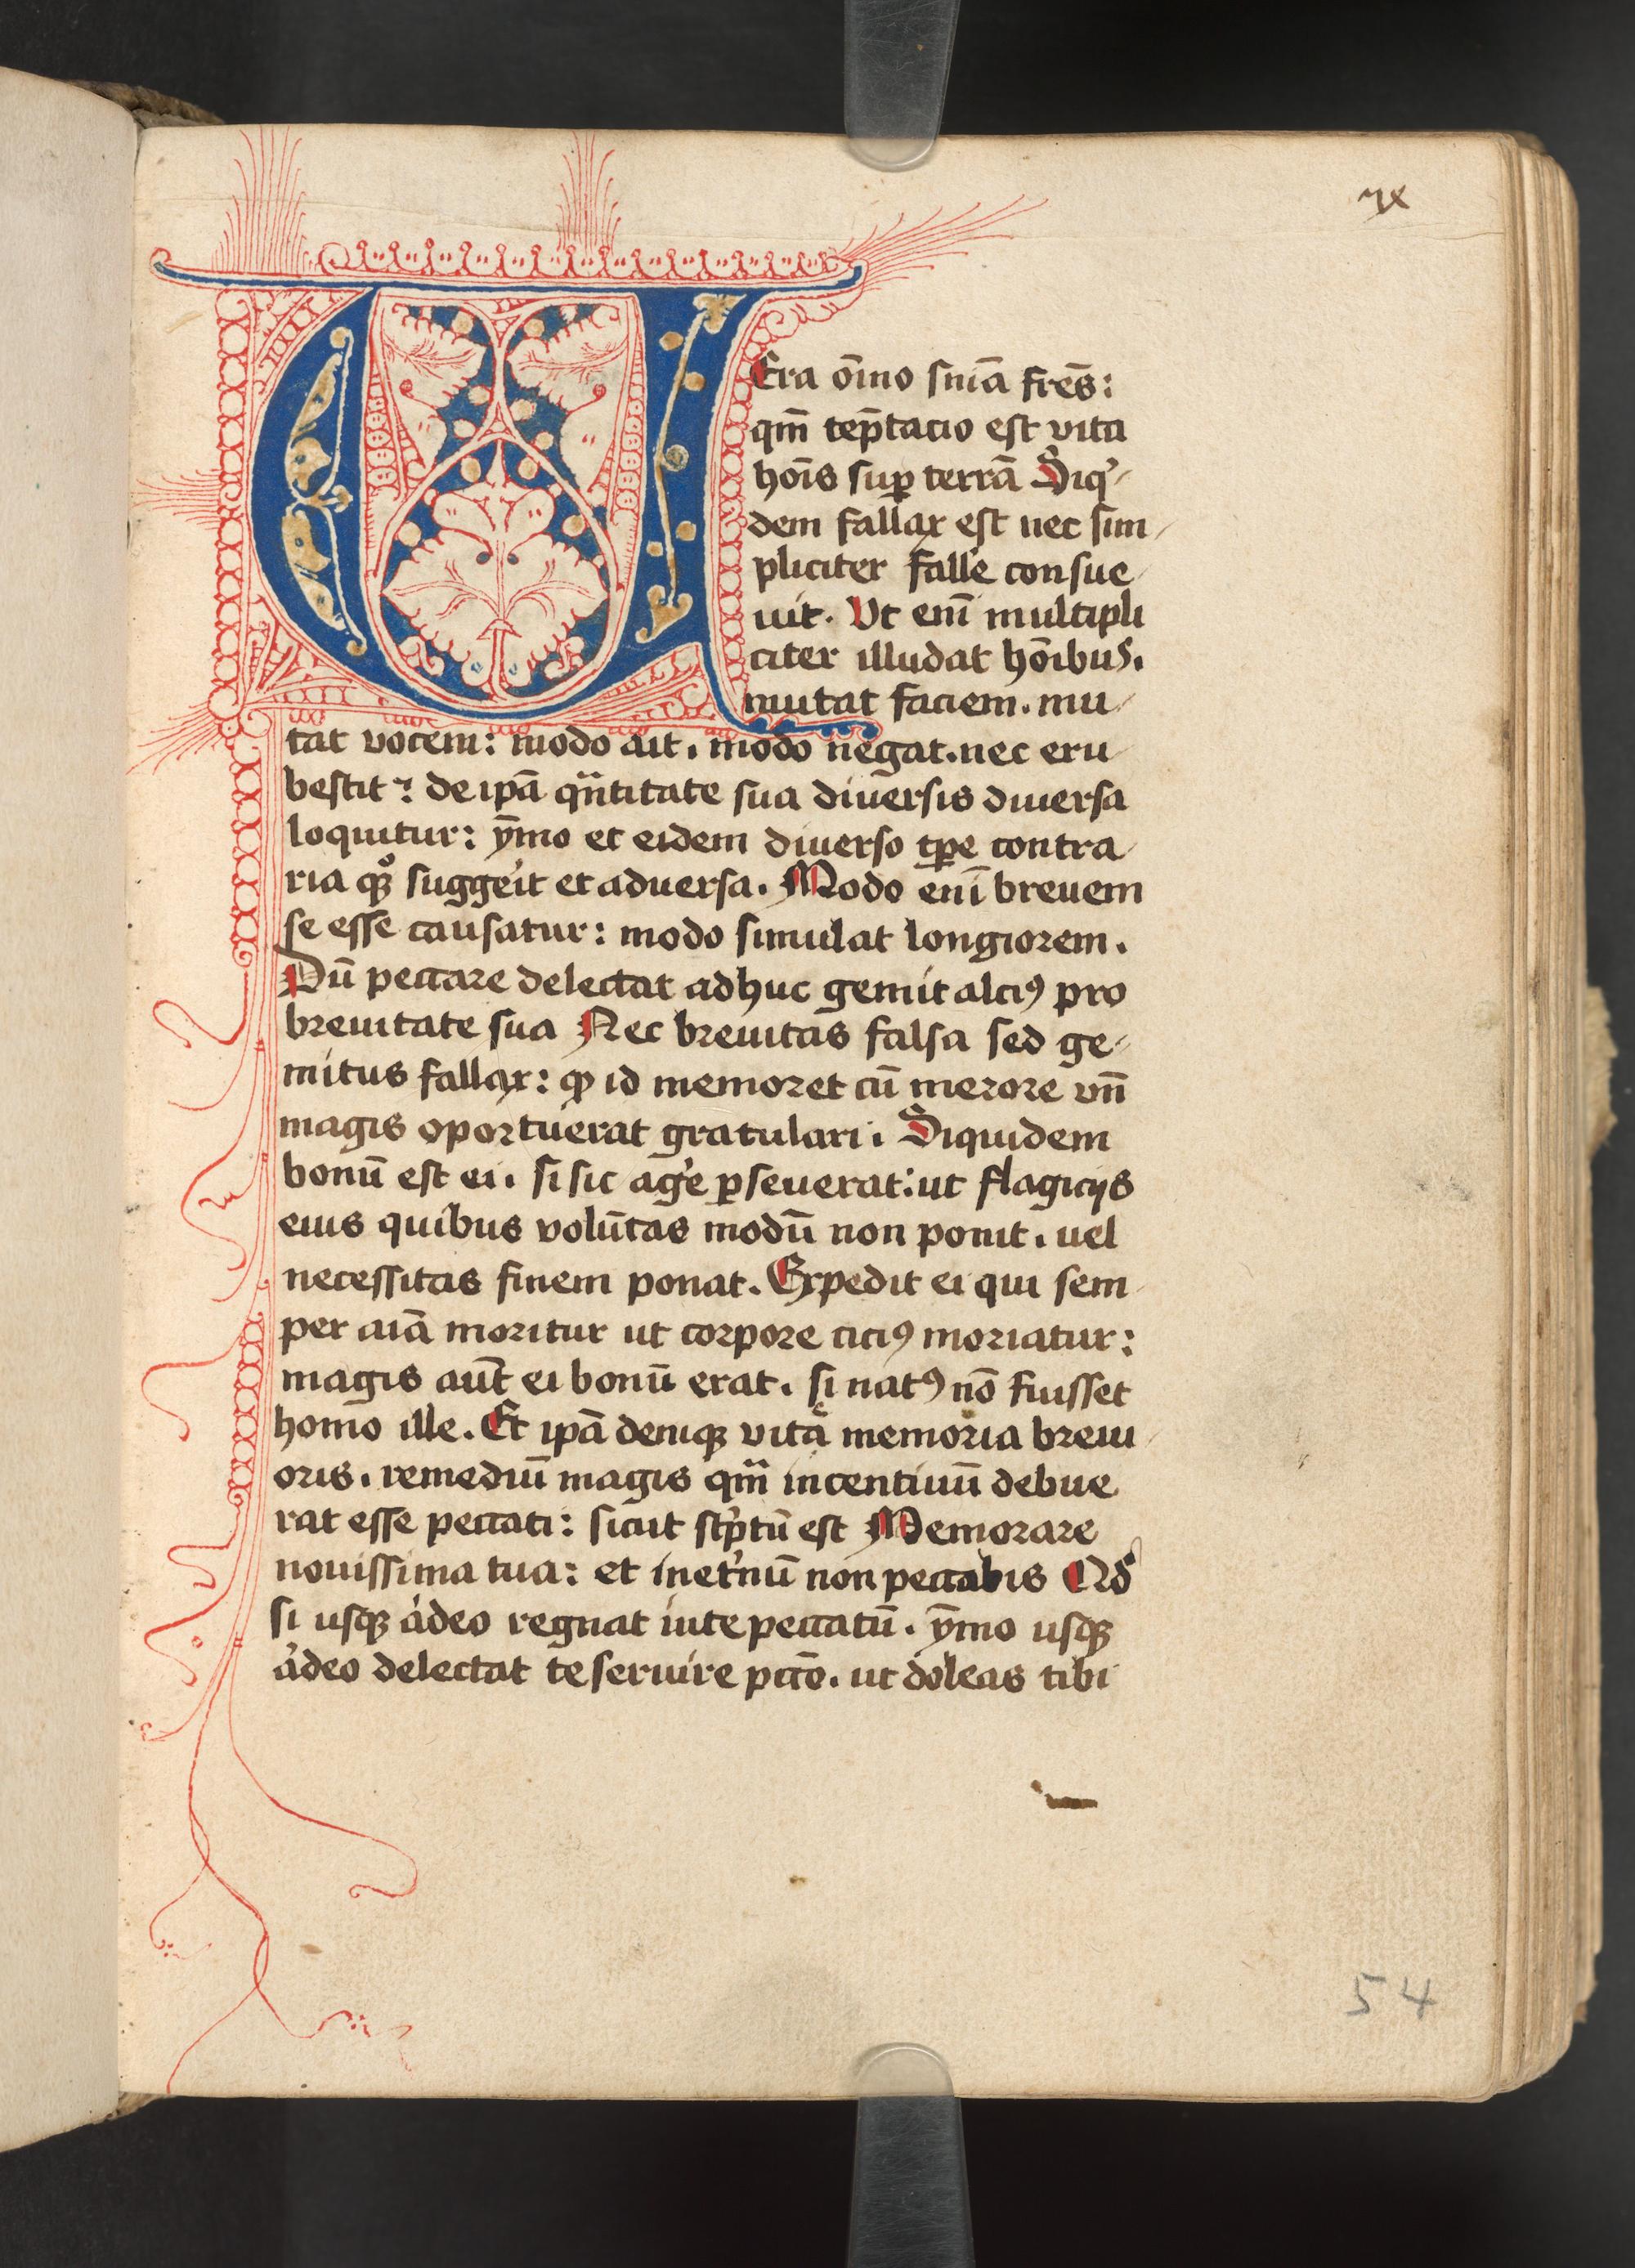 ɲx
UEra oīno snīa frēs:
qm̄ tep̄tacio est vita
hoīs suꝑ terrā Siq'
dem fallax est nec sim
pliciter falle᾽ consue
uit. Vt enī multipli
citer illudat hōibus.
mutat faciem. mu
tat vocem: modo ait. modo negat. nec eru
bescit: de ipā qn̄titate sua diuersis diuersa
loquitur: ȳmo et eidem diuerso tꝑe contra
ria qꝫ suggeīt et aduersa. Modo enī breuem
se esse causatur: modo simulat longiorem.
Dū peccare delectat adhuc gemit alciꝰ pro
breuitate sua Nec breuitas falsa sed ge
mitus fallax: ꝙ id memoret cū merore vn̄
magis oportuerat gratulari. Siquidem
bonū est ei. si sic age᾽ ꝑseuerat: ut flagicijs
eius quibus volūtas modū non ponit. uel
necessitas finem ponat. Expedit ei qui sem
per aīā moritur ut corpore ciciꝰ moriatur:
magis aūt ei bonū erat. si natꝰ nō fuisset
homo ille. Et ipā deniqꝫ vitę memoria breui
oris. remediū magis qm̄ incentiuū debue
rat esse peccati: sicut sc̄ptū est Memorare
nouissima tua: et inet᾽nū non peccabis Qd᾽
si usqꝫ adeo regnat inte peccatū. ȳmo usqꝫ
adeo delectat te seruire pctō. ut doleas tibi
54